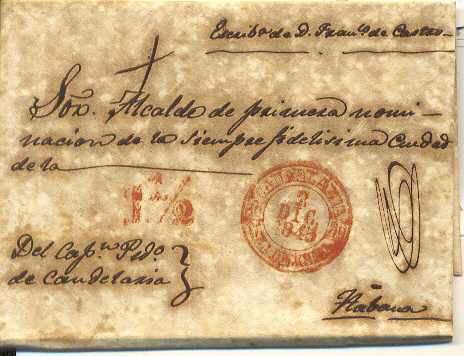 Escribª de D. Franco de Castro
Sor. Alcalde de primera nomi-
nacion de la siempre fidelisima Ciudad
de la
1 1/2
3
DIC
Del Capn. Pdo
de Candelaria
Habana